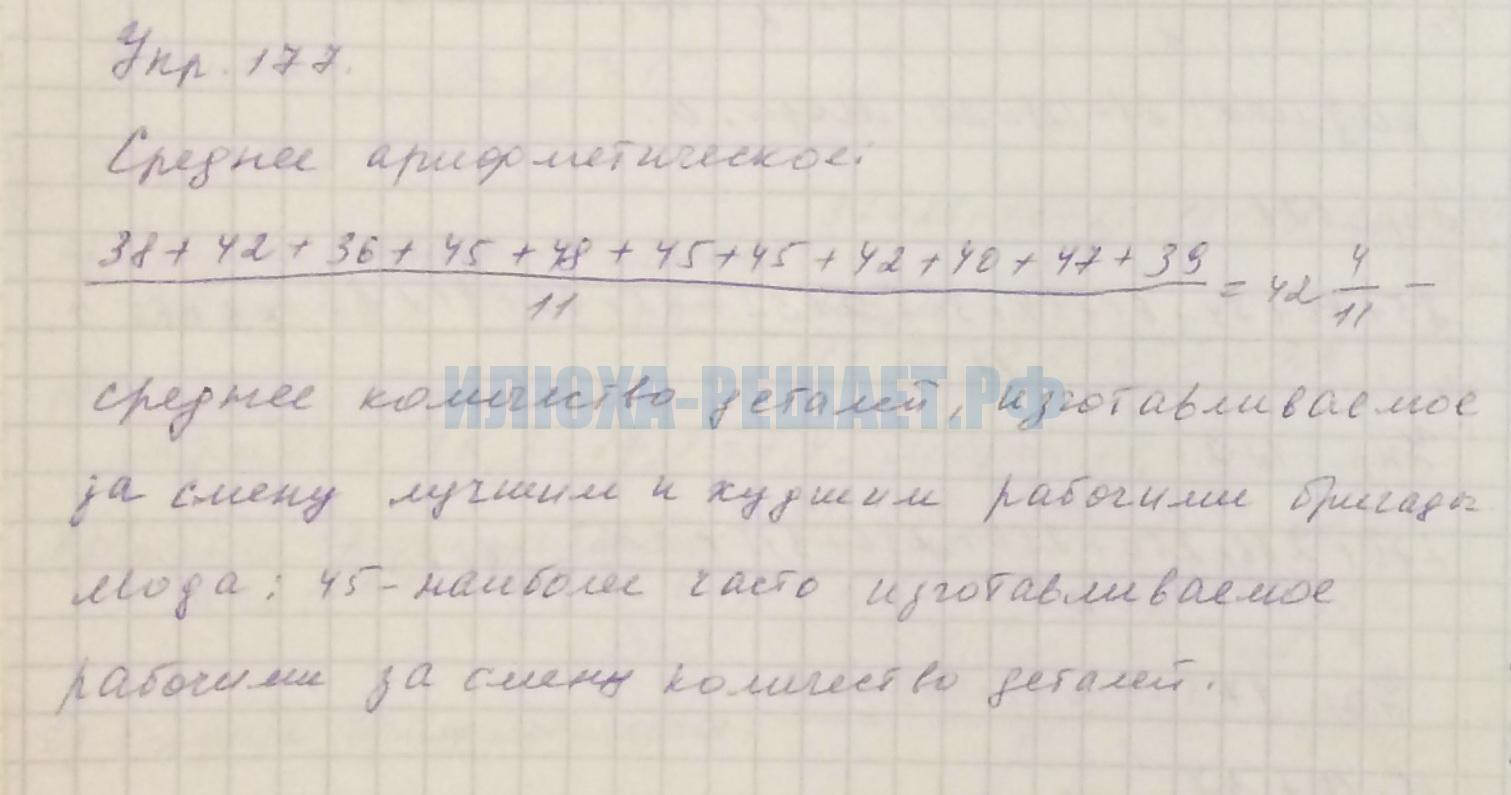 Упр. 177.
Среднее арифметическое:
38 + 42 + 36 + 45 + 48 + 45 + 45 + 42 + 40 + 47 + 39
11
= 42 4/11 –
ИЛЮХА-РЕШАЕТ.РФ
среднее количество деталей, изготавливаемое
за смену лучшим и худшим рабочими бригады
Мода: 45 – наиболее часто изготавливаемое
рабочими за смену количество деталей.